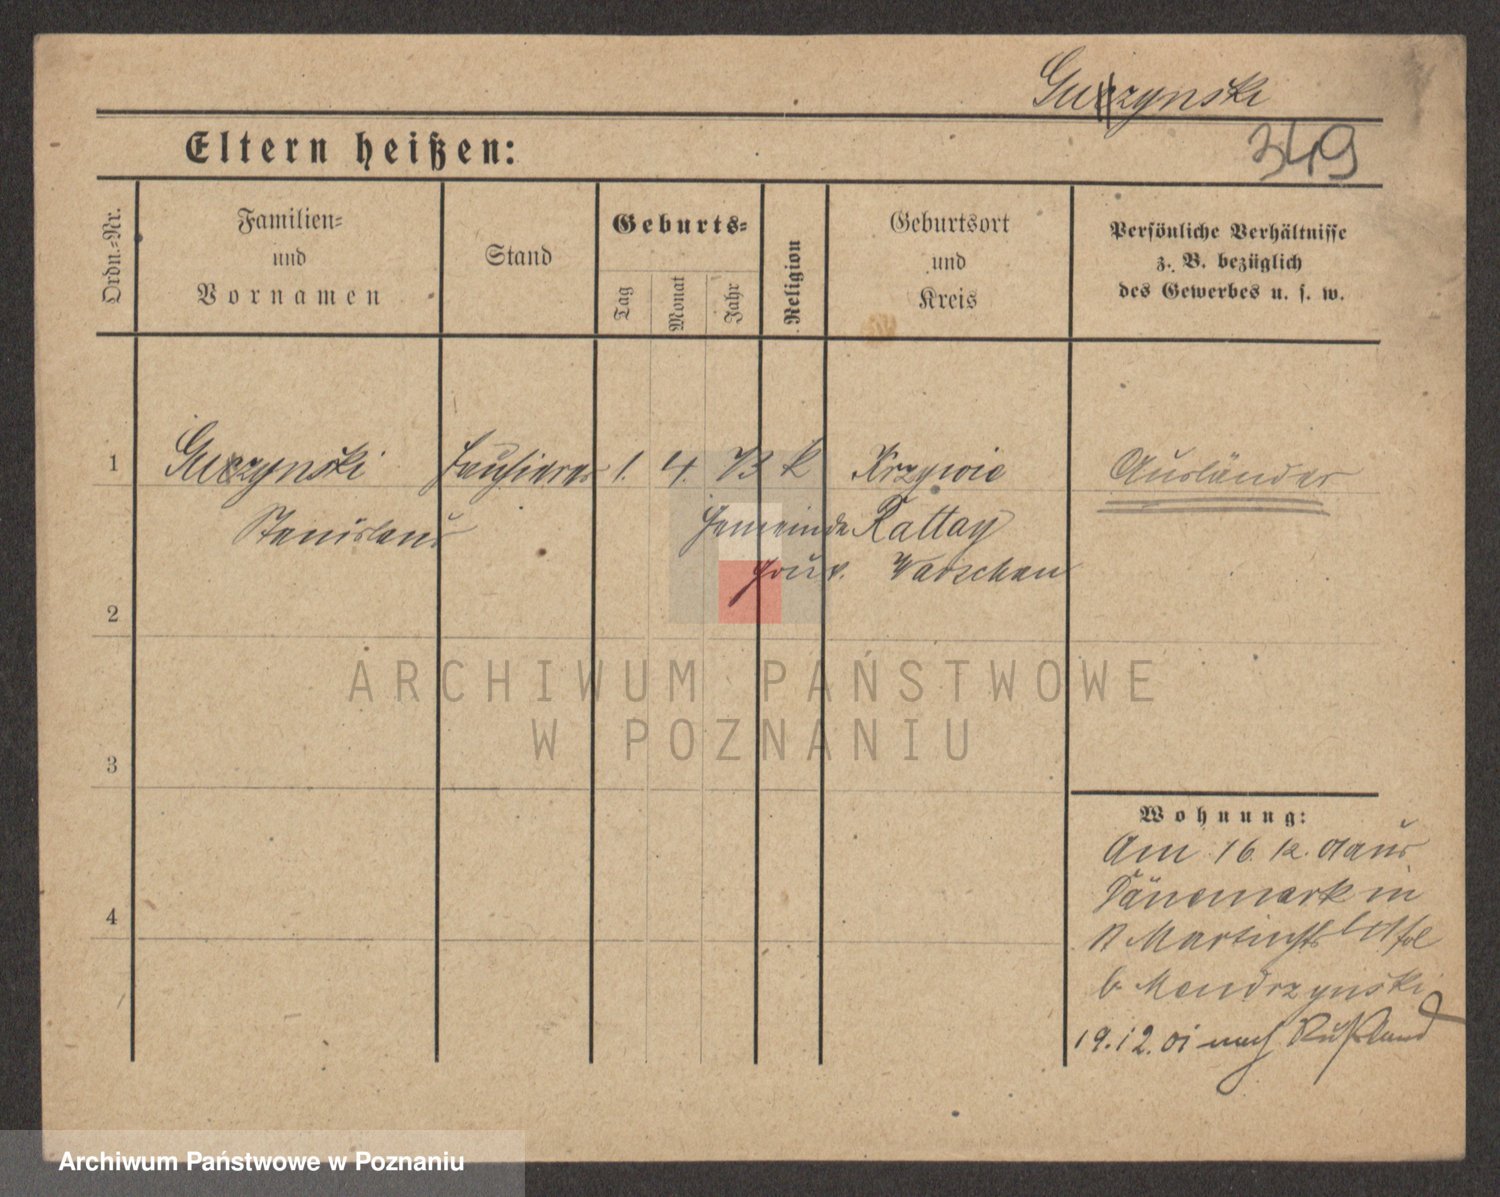 Guczynski
349
Eltern heißen:
Ordn.-Nr.
Familien-
und
Vornamen
Stand
Geburts-
Tag
Monat
Jahr
Religion
Geburtsort
und
Kreis
Persönliche Verhältnisse
z. B. bezüglich
des Gewerbes u. s. w.
1 Guczynski 1. 4. 73 k Krzywie Ausländer
Stanislaus Gemeinde Rattay
Gouv. Warschau
2
3
4
ARCHIWUM PAŃSTWOWE
W POZNANIU
Wohnung:
Am 16 12. 01 aus
Dänemark in
St Martinstr
b. Mendrzynski
19.12.01 nach Rußland
Archiwum Państwowe w Poznaniu